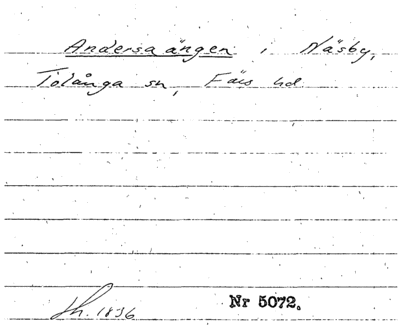 Andersaängen, Näsby,
Tolånga sn, Färs hd
1896
Nr 5072.